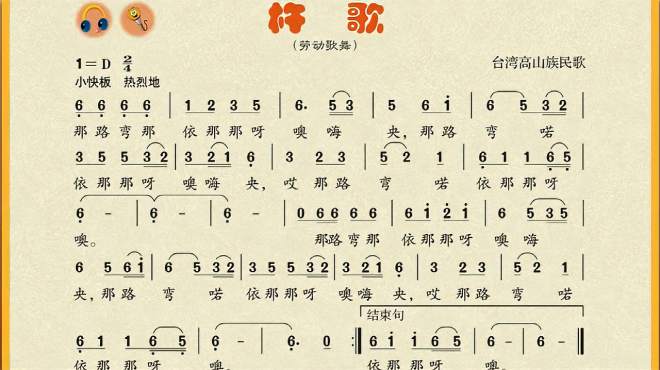 杵 歌
(劳动歌舞)
1=D 2/4
台湾高山族民歌
小快板 热烈地
6 6 6 6 | 1 2 3 5 | 6. 5 3 | 5 6 i | 6 5 3 2 |
那路弯那 依那那呀 噢嗨 央,那路 弯 喏
3 5 5 3 2 | 3 2 1 6 | 3 2 3 | 5 2 1 | 6 1 1 6 5 |
依那那呀 噢嗨央,哎那路 弯 喏 依那那呀
6 - | 6 - | 6 - | 0 6 6 6 6 6 | 6 i 2 i | 6 5 3 5 |
噢。 那路弯那 依那那呀 噢嗨
6 5 6 i | 6 5 3 2 | 3 5 5 3 2 | 3 2 1 6 | 3 2 3 | 5 2 1 |
央,那路 弯 喏 依那那呀 噢嗨央,哎那路 弯 喏
结束句
6 1 1 6 5 | 6 - | 6. 0 :| 6 i i 6 5 | 6 - | 6 - ||
依那那呀 噢。 依那那呀 噢。